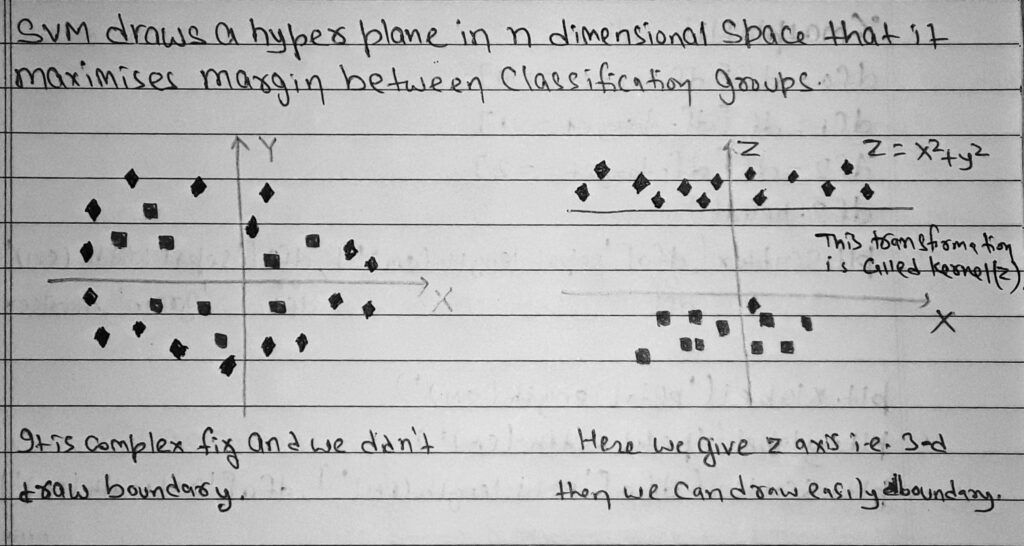 SVM draws a hyper plane in n dimensional Space that it
maximises margin between Classification groups.
Y
Z
Z = x²+y²
This transformation
is Called kernel(z)
X
X
It is complex fig and we didn't
draw boundary.
Here we give z axis i.e. 3-d
then we can draw easily boundary.